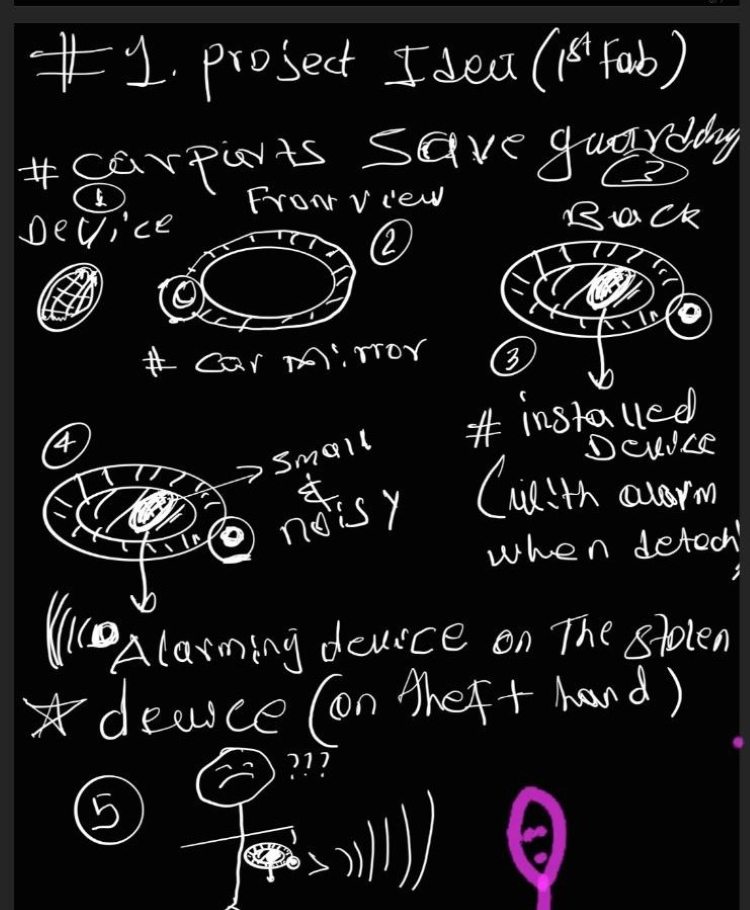 #1. project Idea (1st Fab)
# Carparts Save guarddny
1
Device
Front view
2
Back
# Car Mirror
3
# installed
Device
(with alarm
when detach
4
small
&
noisy
Alarming device on The stolen
device (on theft hand)
5
???